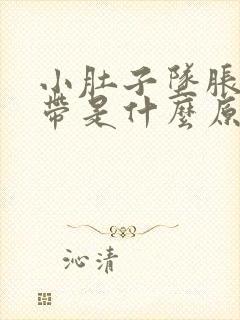 小肚子墜脹
帶是什麼原
沁清